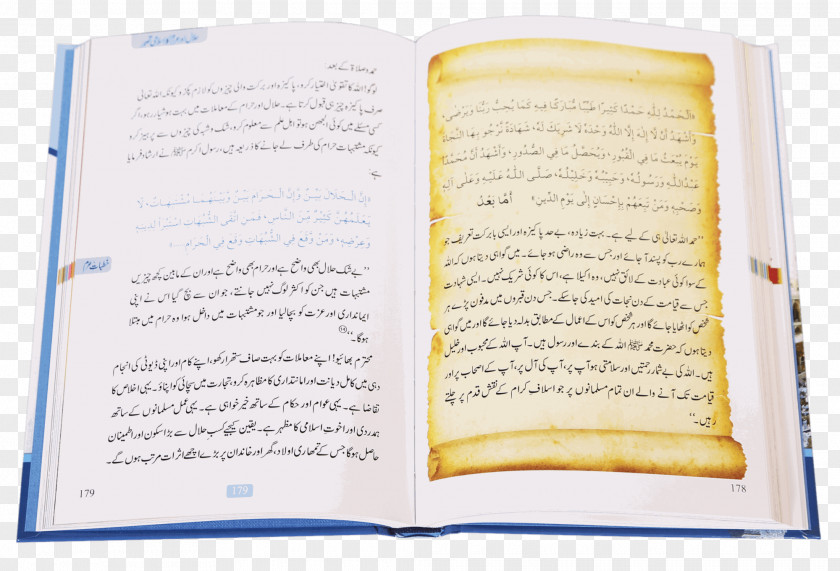 «اَلْحَمْدُ لِلّٰهِ حَمْدًا كَثِيْرًا طَيِّبًا مُبَارَكًا فِيْهِ كَمَا يُحِبُّ رَبُّنَا وَيَرْضٰى،
وَأَشْهَدُ أَنْ لَّا إِلٰهَ إِلَّا اللّٰهُ وَحْدَهُ لَا شَرِيْكَ لَهُ، شَهَادَةً نَرْجُو بِهَا النَّجَاةَ
يَوْمَ يُبْعَثُ مَا فِي الْقُبُوْرِ، وَيُحَصَّلُ مَا فِي الصُّدُوْرِ، وَأَشْهَدُ أَنَّ مُحَمَّدًا
عَبْدُاللّٰهِ وَرَسُوْلُهُ، وَحَبِيْبُهُ وَخَلِيْلُهُ، صَلَّى اللّٰهُ عَلَيْهِ وَعَلٰى آلِهِ
وَصَحْبِهِ وَمَنْ تَبِعَهُمْ بِإِحْسَانٍ إِلٰى يَوْمِ الدِّيْنِ» أَمَّا بَعْدُ
’’حمد اللہ تعالیٰ ہی کے لیے ہے۔ بہت زیادہ، بے حد پاکیزہ اور ایسی بابرکت تعریف جو
ہمارے رب کو پسند آجائے اور جس سے وہ راضی ہو جائے۔ میں گواہی دیتا ہوں کہ اللہ
کے سوا کوئی عبادت کے لائق نہیں، وہ اکیلا ہے، اس کا کوئی شریک نہیں۔ ایسی شہادت
جس سے قیامت کے دن نجات کی امید کی جا سکے۔ جس دن قبروں میں مدفون پڑے ہر
شخص کو اٹھایا جائے گا اور ہر شخص کو اس کے اعمال کے مطابق بدلہ دیا جائے گا اور میں گواہی
دیتا ہوں کہ حضرت محمد ﷺ اللہ کے بندے اور رسول ہیں۔ آپ اللہ کے محبوب اور خلیل
ہیں۔ اللہ کی بے شمار رحمتیں اور سلامتی ہو آپ پر، آپ کی آل پر، آپ کے اصحاب پر اور
قیامت تک آنے والے ان تمام مسلمانوں پر جو اسلاف کرام کے نقش قدم پر چلتے
رہیں۔‘‘
178
حلال اور حرام کا اسلامی تصور
حمد و صلاۃ کے بعد:
لوگو! اللہ کا تقویٰ اختیار کرو، پاکیزہ اور برکت والی چیزوں کو لازم پکڑو کیونکہ اللہ تعالیٰ
صرف پاکیزہ چیز ہی قبول کرتا ہے۔ حلال اور حرام کے معاملات میں بہت ہوشیار رہو، اگر
کسی مسئلے میں کوئی الجھن ہو تو اہل علم سے معلوم کرو، شک و شبہ کی چیزوں سے پرہیز کرو
کیونکہ مشتبہات حرام کی طرف لے جانے کا ذریعہ ہیں، رسول اکرم ﷺ نے ارشاد فرمایا
ہے:
«إِنَّ الْحَلَالَ بَيِّنٌ وَإِنَّ الْحَرَامَ بَيِّنٌ وَبَيْنَهُمَا مُشْتَبِهَاتٌ، لَا
يَعْلَمُهُنَّ كَثِيْرٌ مِّنَ النَّاسِ، فَمَنِ اتَّقَى الشُّبُهَاتِ اسْتَبْرَأَ لِدِيْنِهِ
وَعِرْضِهِ، وَمَنْ وَقَعَ فِي الشُّبُهَاتِ وَقَعَ فِي الْحَرَامِ...»
خطبات حرم
’’بے شک حلال بھی واضح ہے اور حرام بھی واضح ہے اور ان کے مابین کچھ چیزیں
مشتبہات ہیں جن کو اکثر لوگ نہیں جانتے، جو ان سے بچ گیا اس نے اپنی
ایمانداری اور عزت کو بچا لیا اور جو مشتبہات میں داخل ہوا وہ حرام میں مبتلا
ہوگا۔‘‘
محترم بھائیو! اپنے معاملات کو بہت صاف ستھرا رکھو، اپنے کام اور اپنی ڈیوٹی کی انجام
دہی میں کامل دیانت اور امانتداری کا مظاہرہ کرو، تجارت میں سچائی کو اپناؤ۔ یہی اخلاص کا
تقاضا ہے۔ یہی عوام اور حکام کے ساتھ خیر خواہی ہے۔ یہی عمل مسلمانوں کے ساتھ
ہمدردی اور اخوت اسلامی کا مظہر ہے۔ یقین کیجیے کسب حلال سے بڑا سکون اور اطمینان
حاصل ہوگا جس کے تمھاری اولاد، گھر اور خاندان پر بڑے اچھے اثرات مرتب ہوں گے۔
179
179